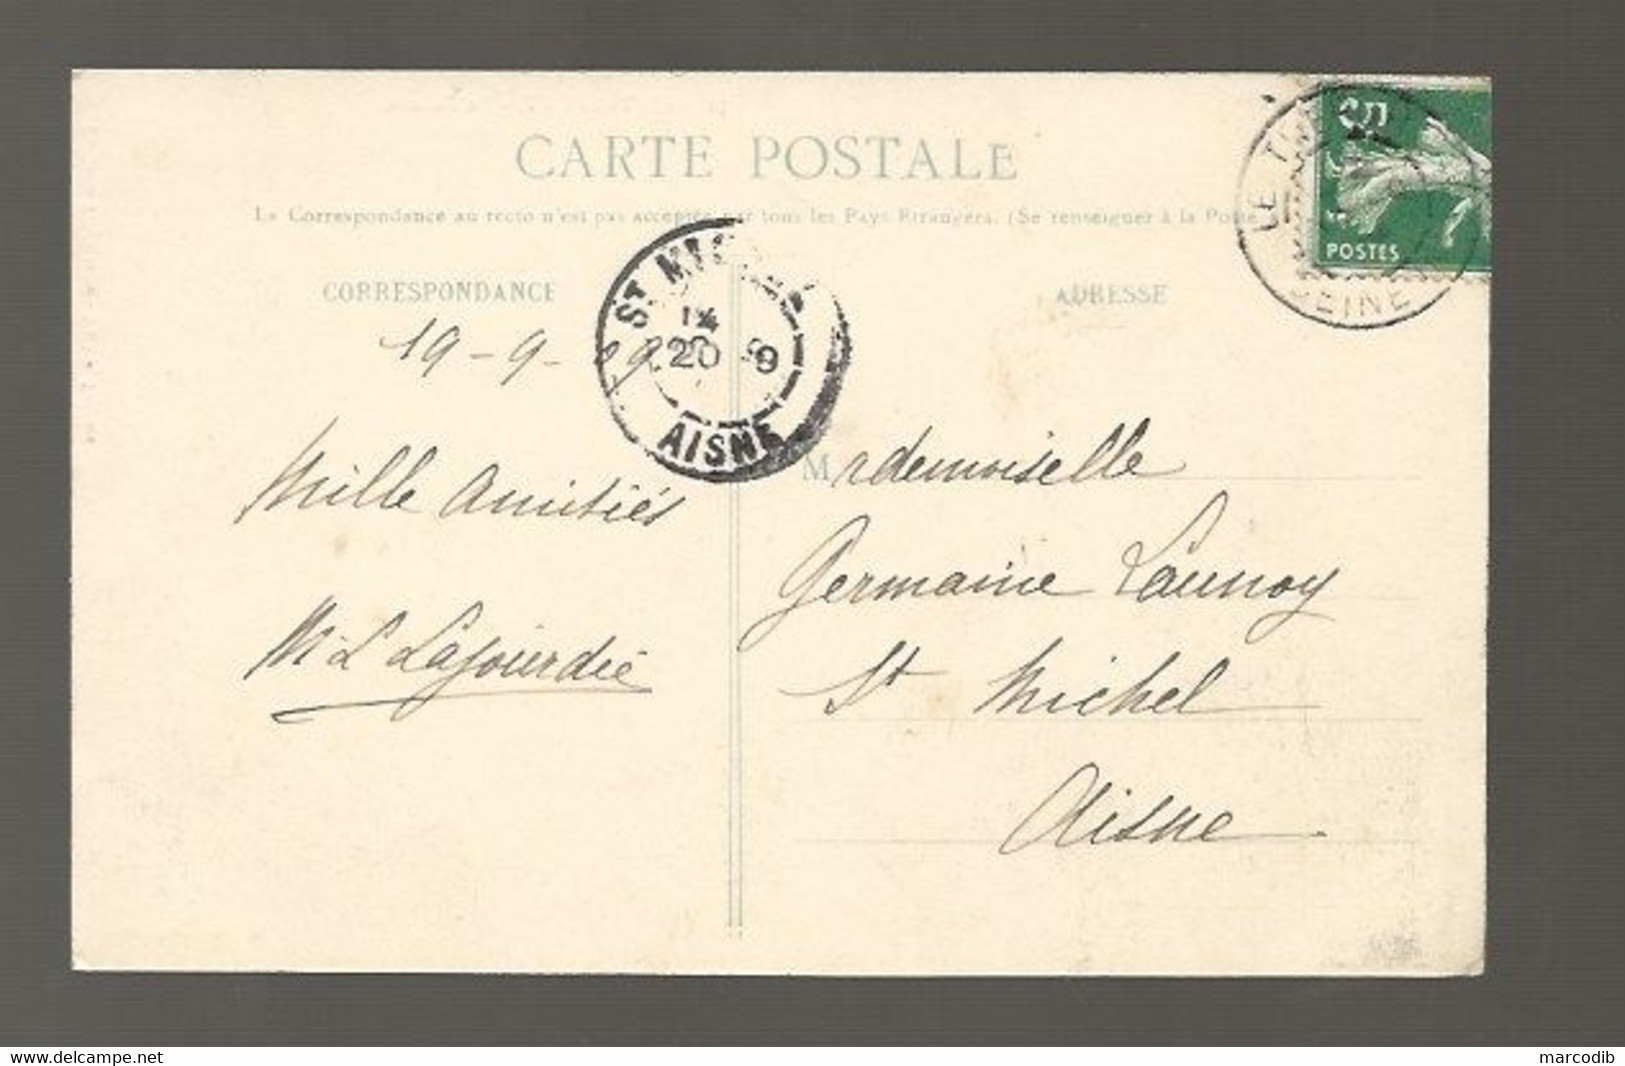 CARTE POSTALE
La Correspondance au recto n'est pas acceptée par tous les Pays Etrangers. (Se renseigner à la Poste
CORRESPONDANCE
ADRESSE
19-9-09
ST MICHEL
14
20 9
AISNE
LE
SEINE
5
POSTES
Mille amitiés
M L Lajourdie
Mademoiselle
Germaine Launoy
St Michel
Aisne
www.delcampe.net
marcodib